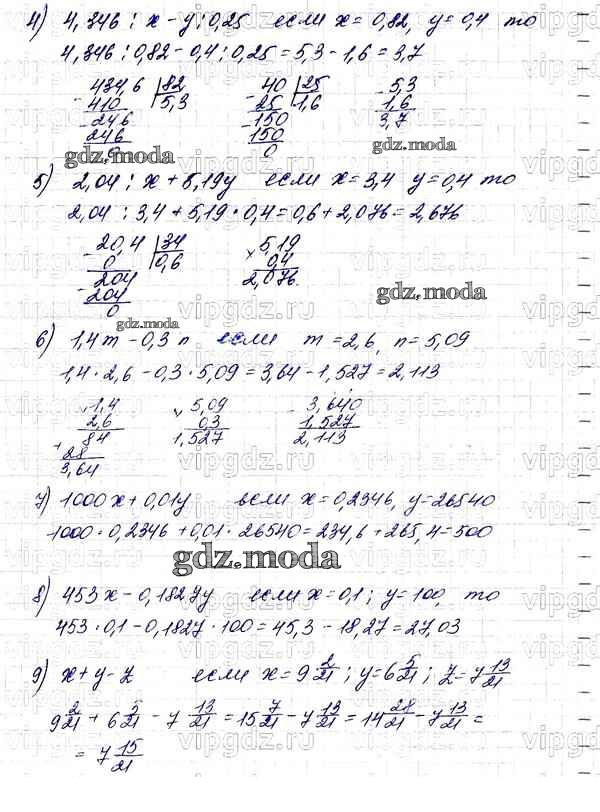 4) 4,346 : x - y : 0,25 если x = 0,82, y = 0,4 то
4,346 : 0,82 - 0,4 : 0,25 = 5,3 - 1,6 = 3,7
434,6 82 40 25 5,3
410 5,3 25 1,6 1,6
246 150 3,7
246 150
0 0
gdz.moda gdz.moda gdz.moda
5) 2,04 : x + 5,19y если x = 3,4 y = 0,4 то
2,04 : 3,4 + 5,19 · 0,4 = 0,6 + 2,076 = 2,676
20,4 34 5,19
0 0,6 0,4
204 2,076
204
0
gdz.moda
gdz.moda
6) 1,4m - 0,3n если m = 2,6, n = 5,09
1,4 · 2,6 - 0,3 · 5,09 = 3,64 - 1,527 = 2,113
1,4 5,09 3,640
2,6 0,3 1,527
84 1,527 2,113
28
3,64
7) 1000x + 0,01y если x = 0,2346, y = 26540
1000 · 0,2346 + 0,01 · 26540 = 234,6 + 265,4 = 500
gdz.moda
8) 453x - 0,1827y если x = 0,1; y = 100, то
453 · 0,1 - 0,1827 · 100 = 45,3 - 18,27 = 27,03
9) x + y - z если x = 9 2/21; y = 6 5/21; z = 7 13/21
9 2/21 + 6 5/21 - 7 13/21 = 15 7/21 - 7 13/21 = 14 28/21 - 7 13/21 =
= 7 15/21
vipgdz.ru